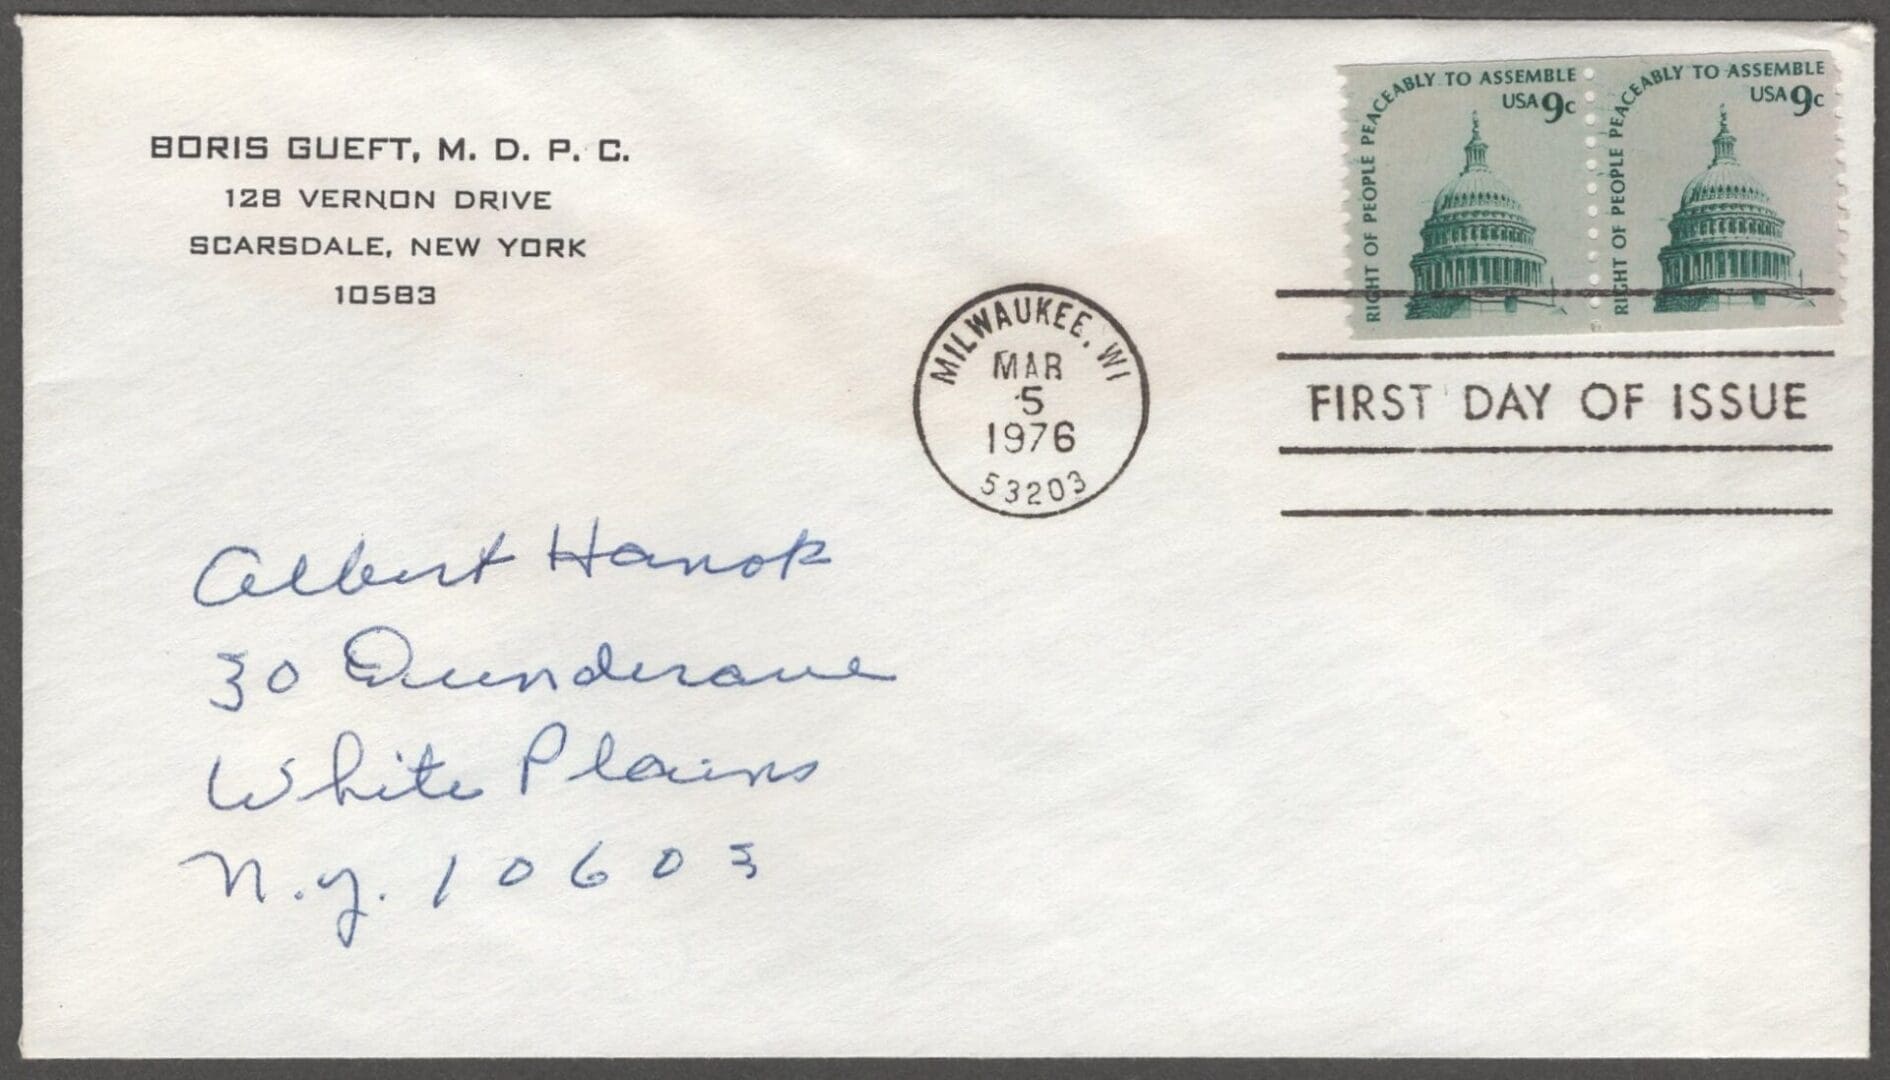 BORIS GUEFT, M. D. P. C.
128 VERNON DRIVE
SCARSDALE, NEW YORK
10583
RIGHT OF PEOPLE PEACEABLY TO ASSEMBLE
USA 9c
RIGHT OF PEOPLE PEACEABLY TO ASSEMBLE
USA 9c
MILWAUKEE, WI
MAR
5
1976
53203
FIRST DAY OF ISSUE
Albert Hanok
30 Dunderave
White Plains
N.Y. 10603